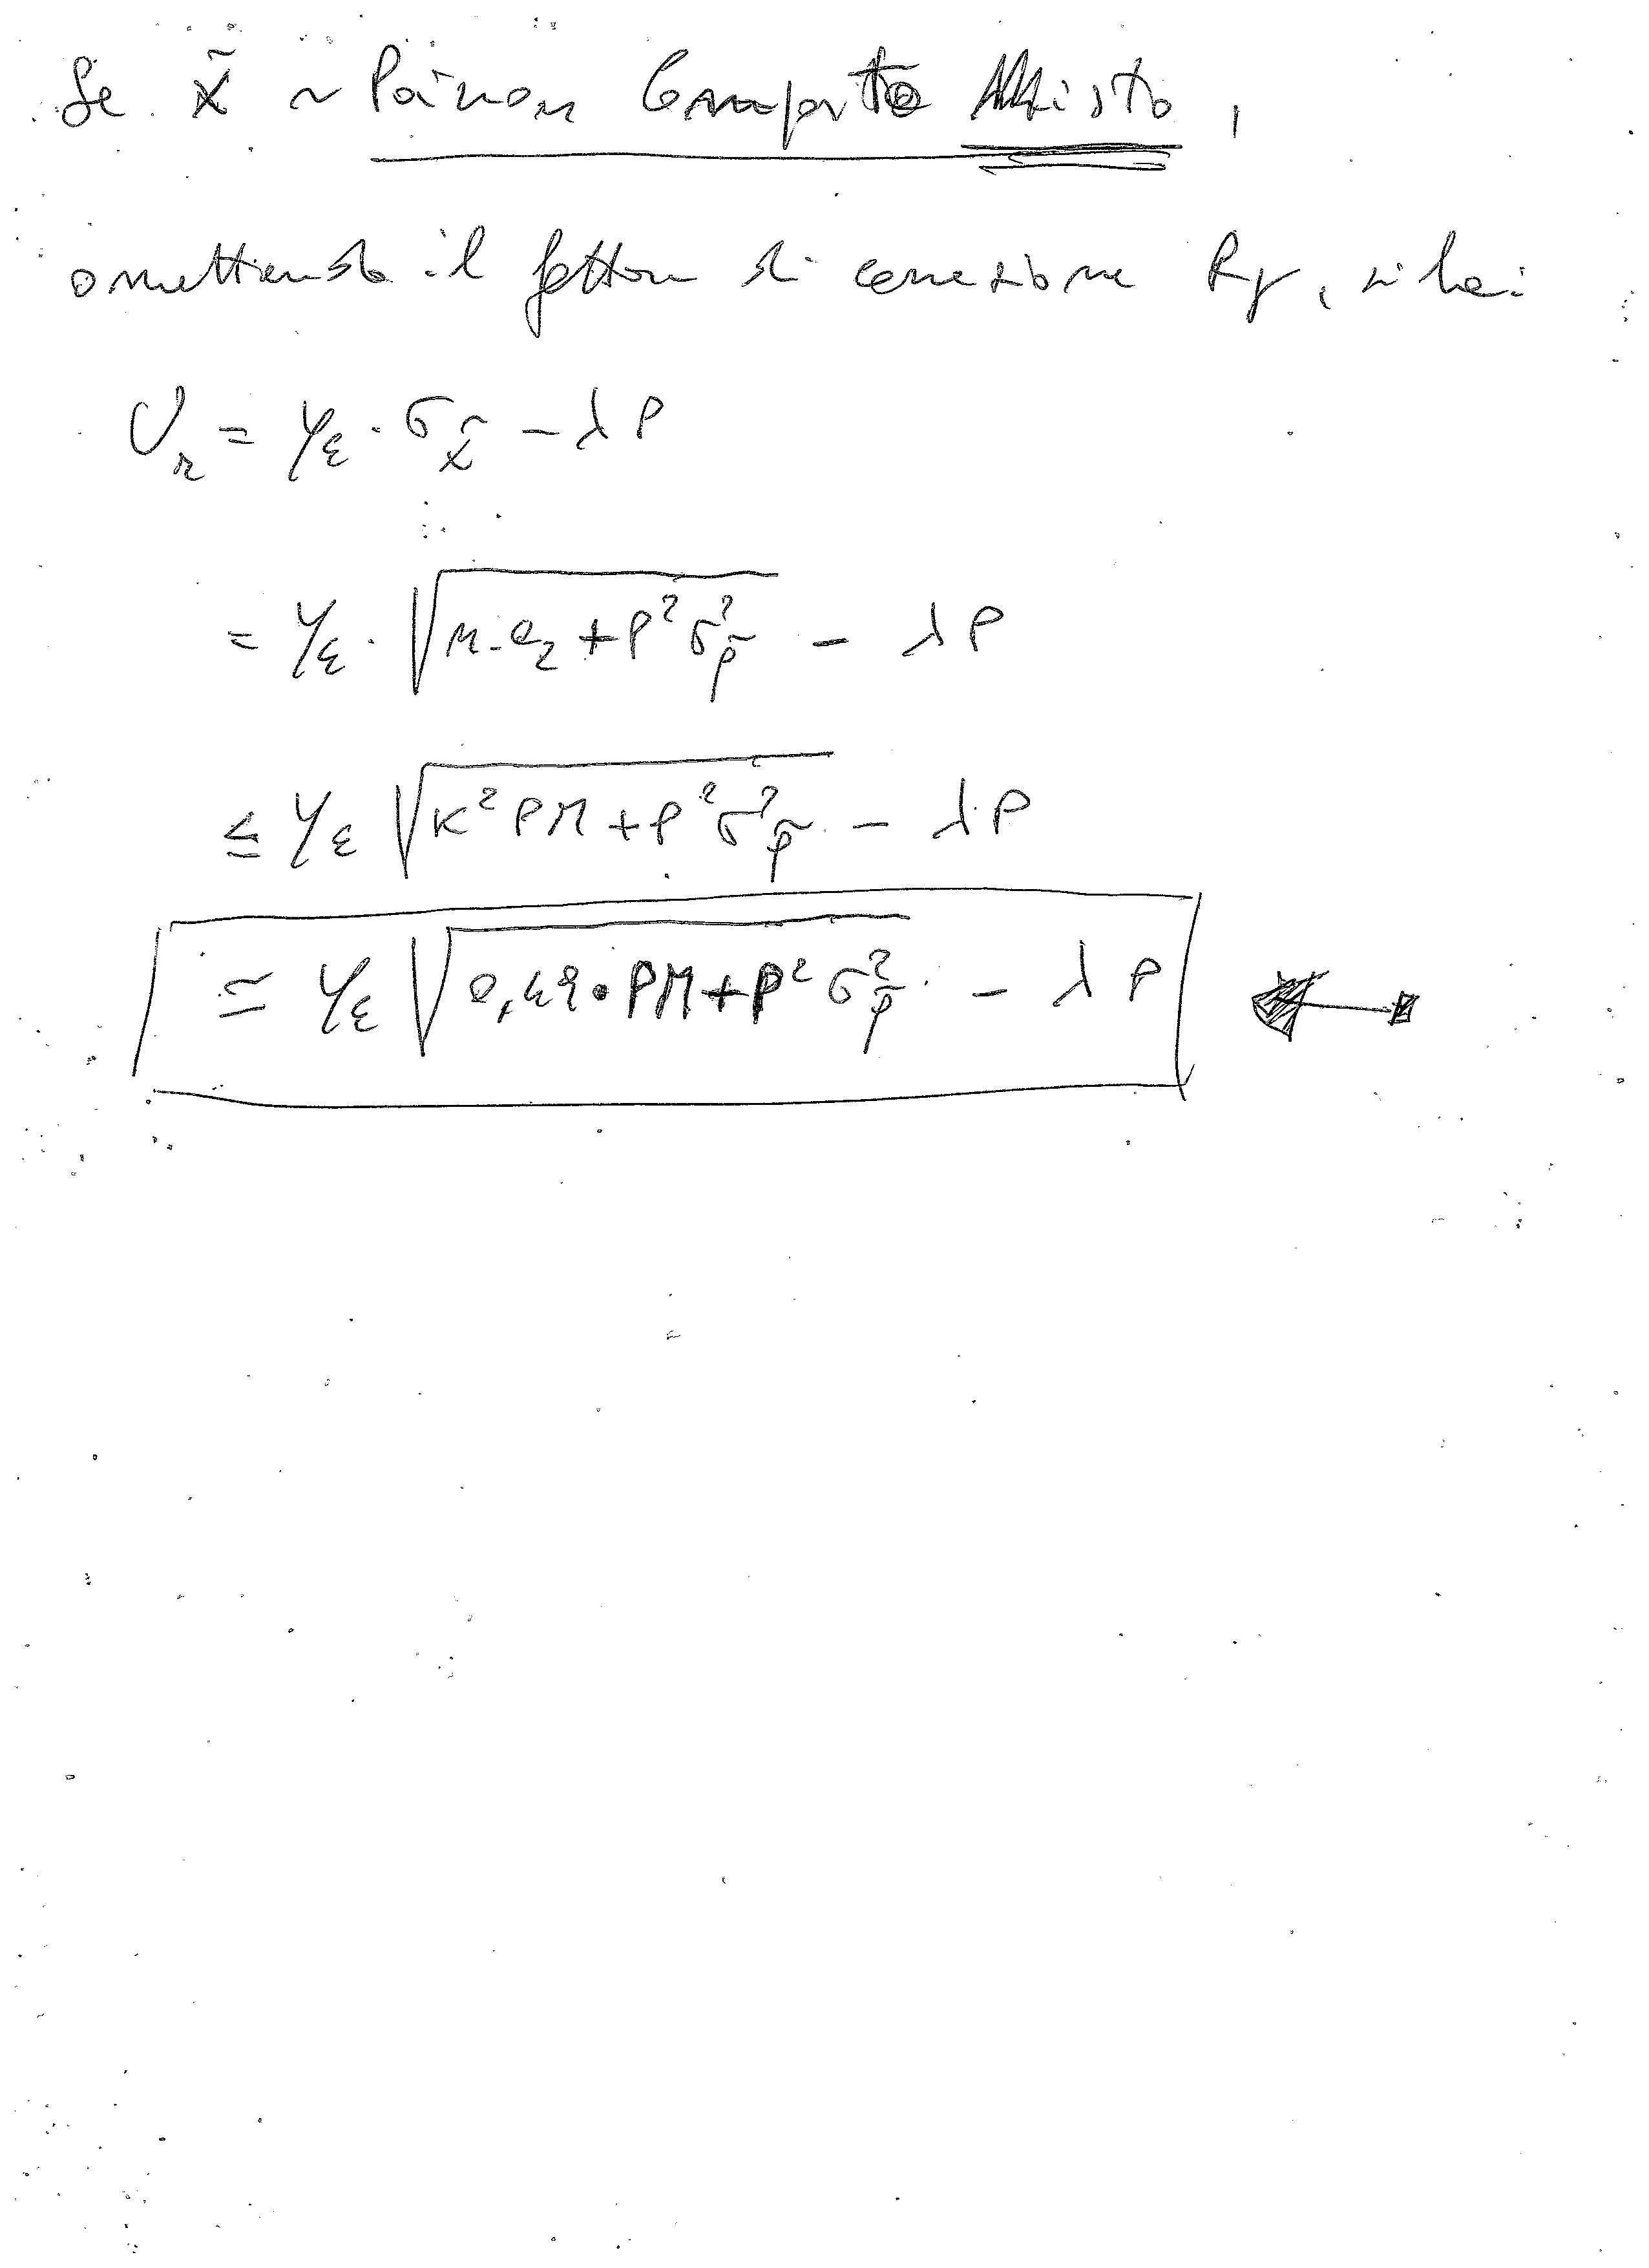 Se x̃ ~ Poisson Composto Misto,
omettendo il fattore di correzione Rγ, si ha:
U_r = y_ε · σ_x̃ - λP
= y_ε · √(n·a₂ + P²σ²_p̃) - λP
≤ y_ε √(K²PM + P²σ²_p̃) - λP
≃ y_ε √(0,49·PM + P²σ²_p̃) - λP